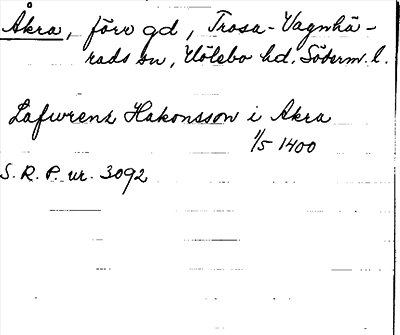 Åkra, förr gd, Trosa-Vagnhä-
rads sn, Hölebo hd. Söderm. l.
Lafwrens Hakonsson i Akra
1/5 1400
S. R. P. nr. 3092